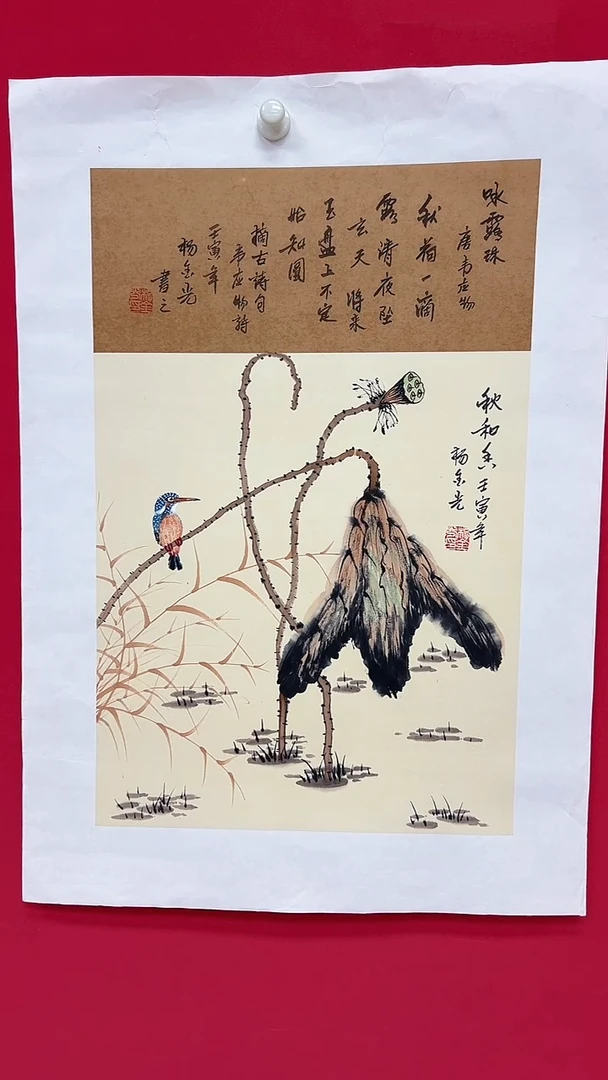 咏露珠
唐韦应物
秋荷一滴
露清夜坠
玄天将来
玉盘上不定
始知圆
摘古诗句
韦应物诗
壬寅年
杨金光
書之
秋和 壬寅年
杨金光